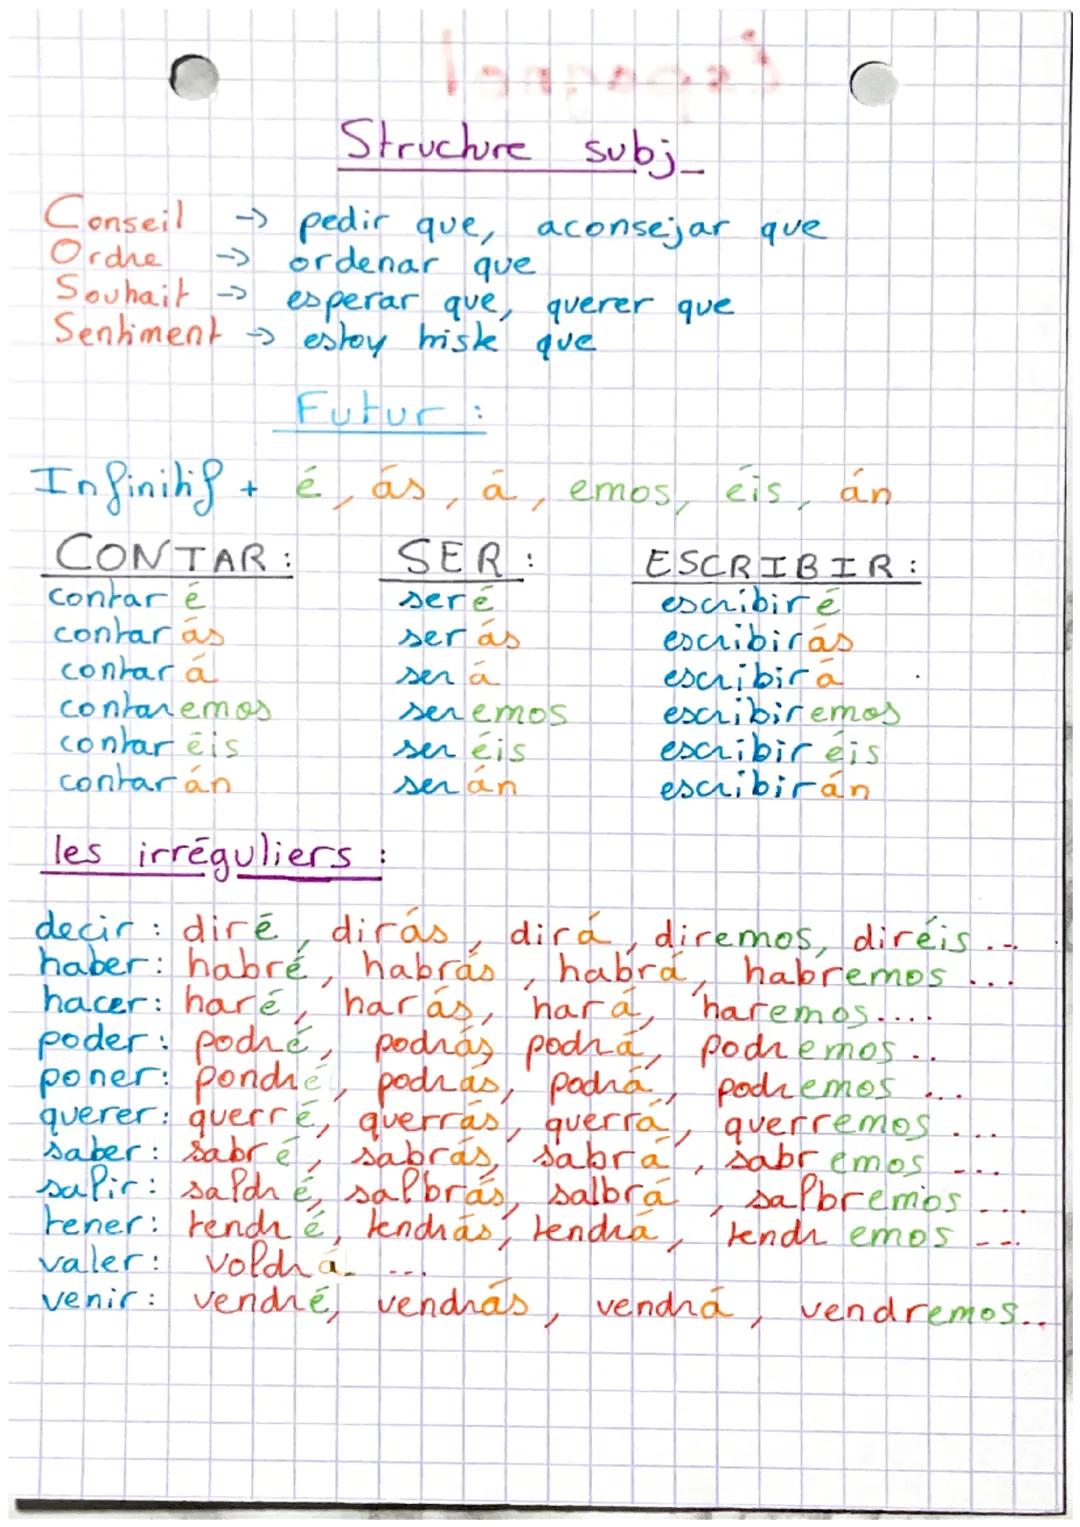 Espagnol
Structure subj_
Conseil -> pedir que, aconsejar que
Ordre -> ordenar que
Souhait -> esperar que, querer que
Sentiment -> estoy triste que
Futur :
Infinitif + é, ás, á, emos, éis, án
CONTAR : SER : ESCRIBIR :
contaré seré escribiré
contarás serás escribirás
contará será escribirá
contaremos seremos escribiremos
contaréis seréis escribiréis
contarán serán escribirán
les irréguliers :
decir : diré, dirás, dirá, diremos, diréis ...
haber : habré, habrás, habrá, habremos ...
hacer : haré, harás, hará, haremos....
poder : podré, podrás, podrá, podremos ..
poner : pondré, podrás, podrá, podremos ...
querer : querré, querrás, querrá, querremos ...
saber : sabré, sabrás, sabrá, sabremos ...
salir : saldré, salbrás, salbrá, salbremos ...
tener : tendré, tendrás, tendrá, tendremos ...
valer : voldrá. ...
venir : vendré, vendrás, vendrá, vendremos...